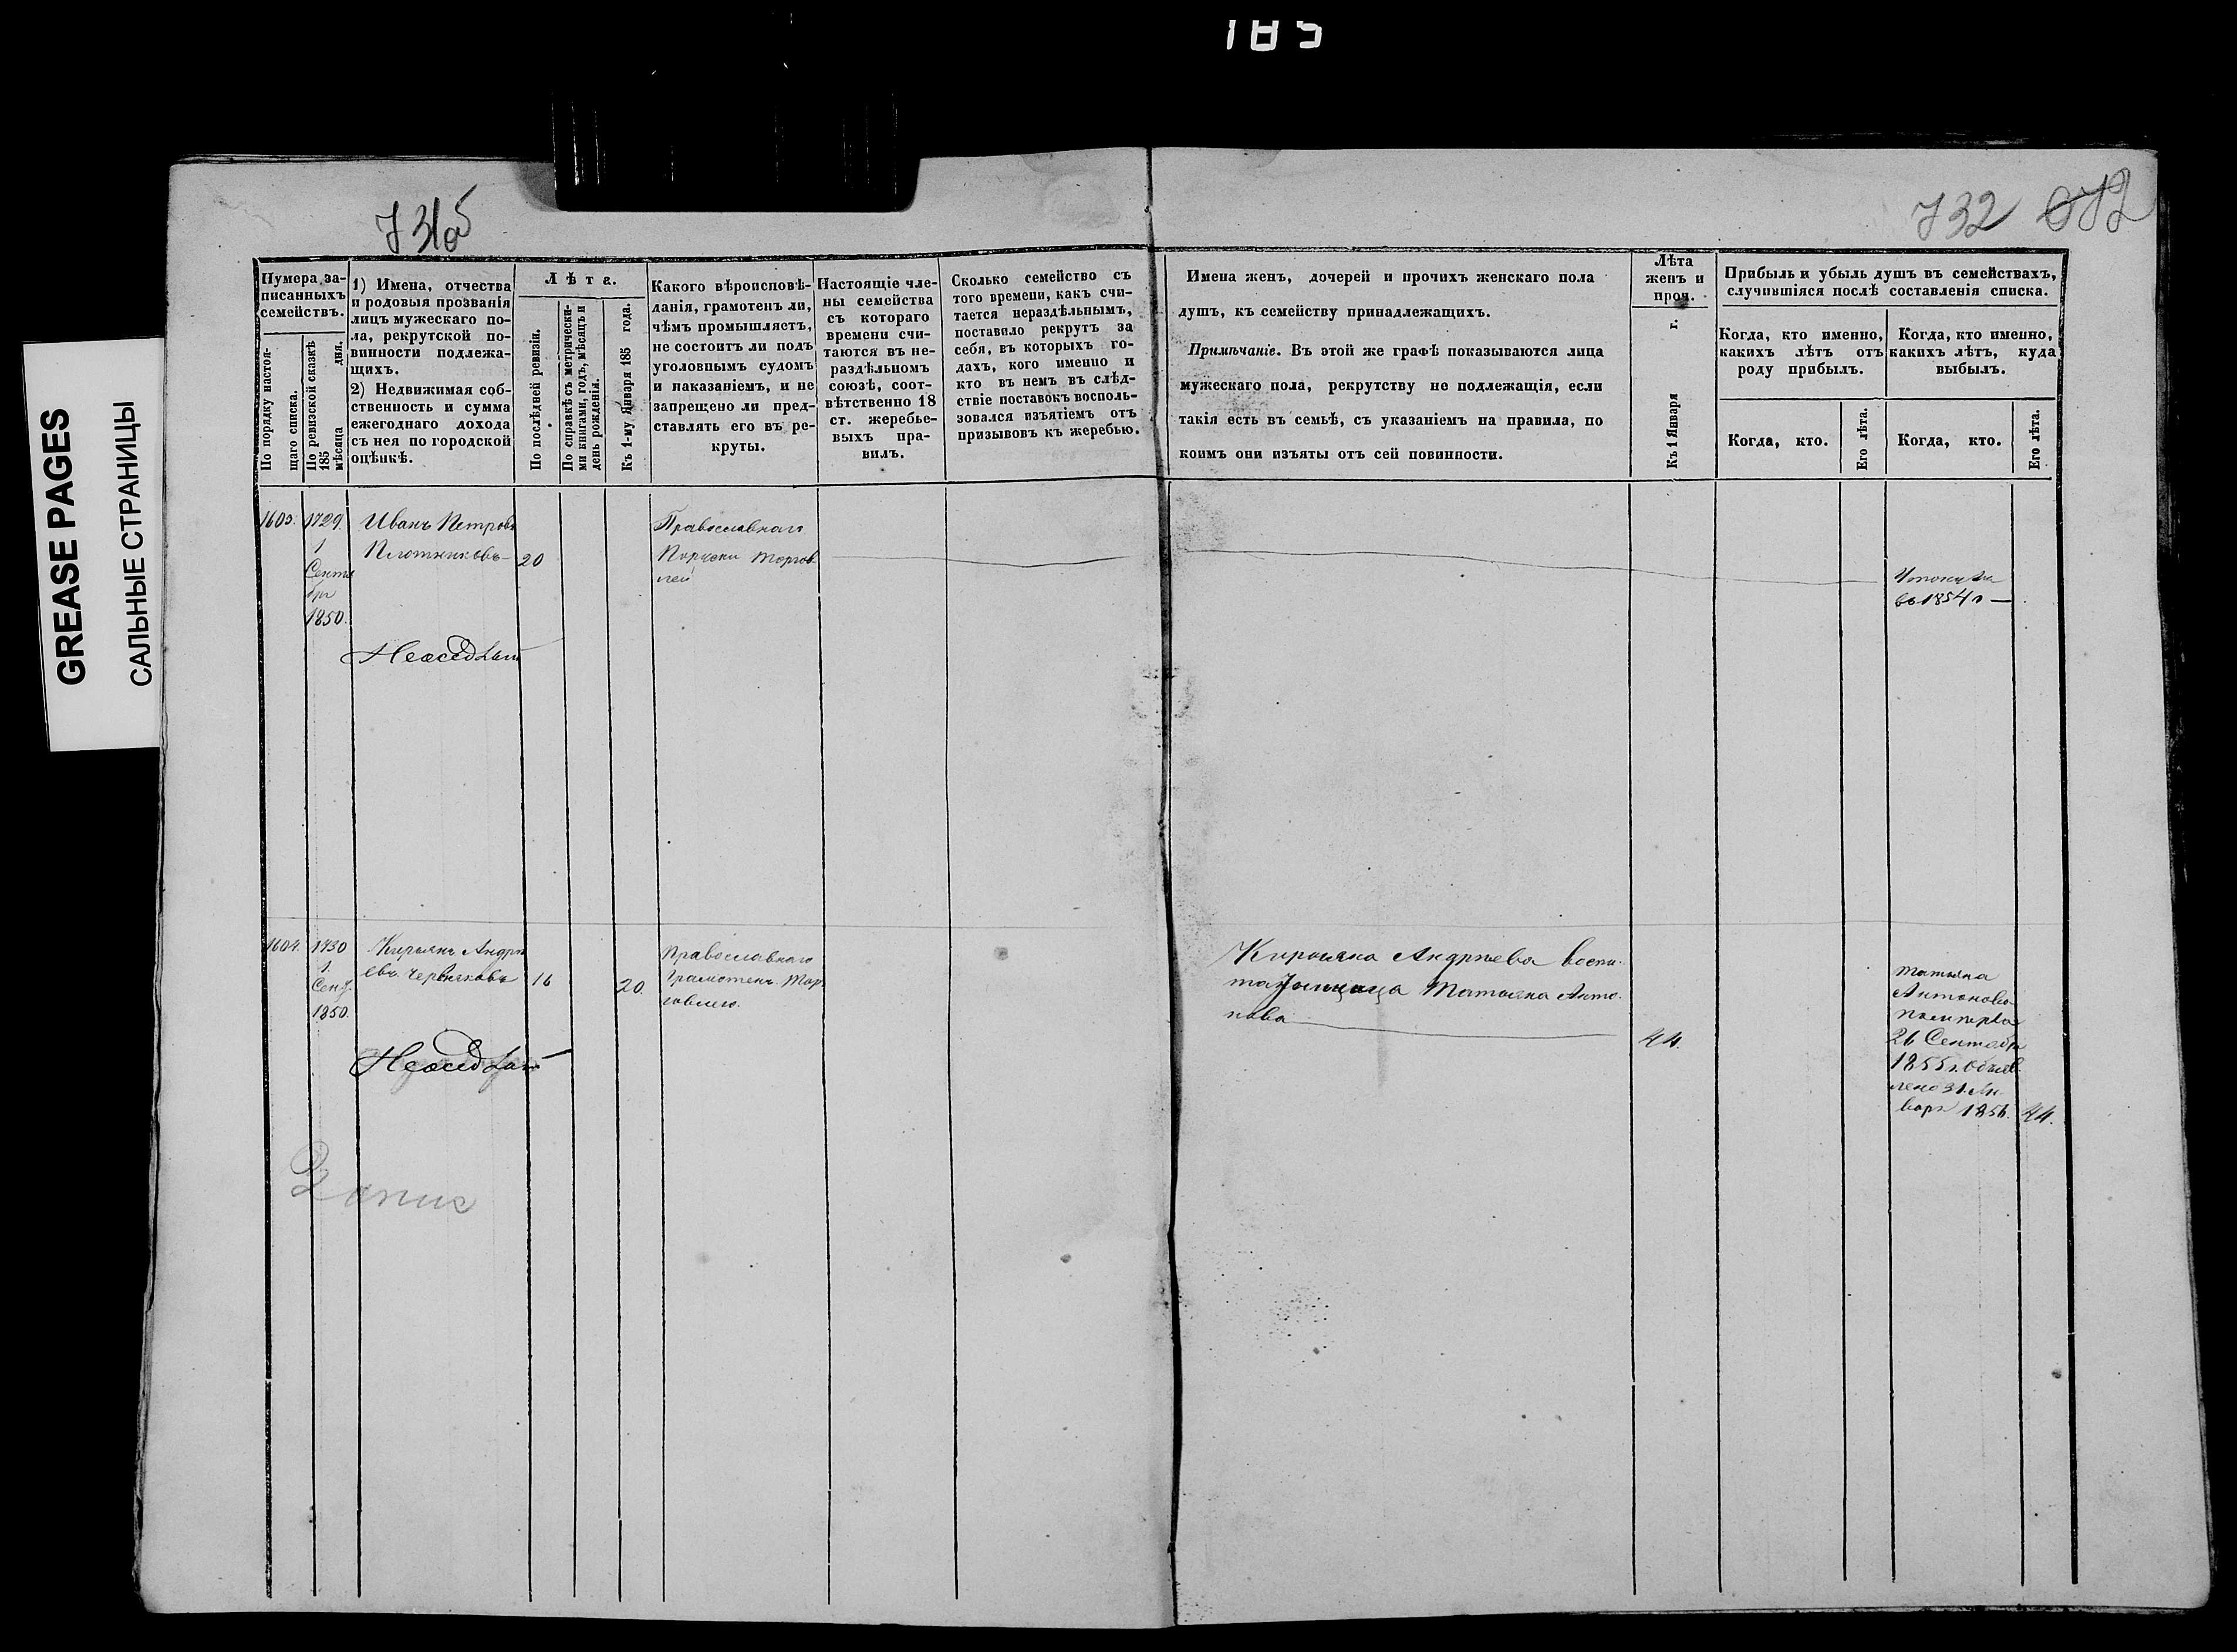 185
GREASE PAGES
САЛЬНЫЕ СТРАНИЦЫ
731об
732 672
Нумера за-
писанныхъ
семействъ.
По порядку настоя-
щаго списка.
По ревизской сказкѣ
185 мѣсяца дня.
1) Имена, отчества
и родовыя прозванія
лицъ мужескаго по-
ла, рекрутской по-
винности подлежа-
щихъ.
2) Недвижимая соб-
ственность и сумма
ежегоднаго дохода
съ нея по городской
оцѣнкѣ.
Лѣта.
По послѣдней ревизіи.
По справкѣ съ метрически-
ми книгами, годъ, мѣсяцъ и
день рожденія.
Къ 1-му Января 185 года.
Какого вѣроисповѣ-
данія, грамотенъ ли,
чѣмъ промышляетъ,
не состоитъ ли подъ
уголовнымъ судомъ
и наказаніемъ, и не
запрещено ли пред-
ставлять его въ ре-
круты.
Настоящіе чле-
ны семейства
съ котораго
времени счи-
таются въ не-
раздѣльномъ
союзѣ, соот-
вѣтственно 18
ст. жеребье-
выхъ пра-
вилъ.
Сколько семейство съ
того времени, какъ счи-
тается нераздѣльнымъ,
поставило рекрутъ за
себя, въ которыхъ го-
дахъ, кого именно и
кто въ немъ въ слѣд-
ствіе поставокъ восполь-
зовался изъятіемъ отъ
призывовъ къ жеребью.
Имена женъ, дочерей и прочихъ женскаго пола
душъ, къ семейству принадлежащихъ.
Примѣчаніе. Въ этой же графѣ показываются лица
мужескаго пола, рекрутству не подлежащія, если
такія есть въ семьѣ, съ указаніемъ на правила, по
коимъ они изъяты отъ сей повинности.
Лѣта
женъ и
проч.
Къ 1 Января г.
Прибыль и убыль душъ въ семействахъ,
случившіяся послѣ составленія списка.
Когда, кто именно,
какихъ лѣтъ отъ
роду прибылъ.
Когда, кто именно,
какихъ лѣтъ, куда
выбылъ.
Когда, кто.
Его лѣта.
Когда, кто.
Его лѣта.
1603. 1729.
1
Сентя
бря
1850.
Иванъ Петровъ
Плотниковъ 20
Православнаго
торгов-
лей
въ 1854 г
1604. 1730
1
Сент.
1850.
Кирьянъ Андре
евъ Червяковъ 16
20.
Православнаго
Грамотенъ. Тор
говлею.
Кирьяна Андреева воспи-
тальница Татьяна Анто-
нова
44.
Татьяна
Антонова
померла
26 Сентября
1855 г. Объяв
лено 31 Ян
варя 1856. 44.